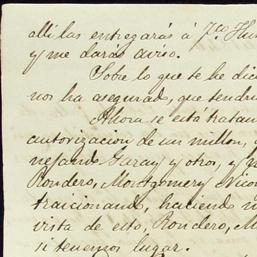 alli las entregarás á Fco
y me darás aviso.
Sobre lo que te he dic
nos ha asegurado, que tendri
Ahora se está tratan
autorizacion de un millon,
nejando Garay y otros, y
Rondero, Montgomery, Nico
traicionando, haciendo
vista de esto, Rondero, M
si tenemos lugar.